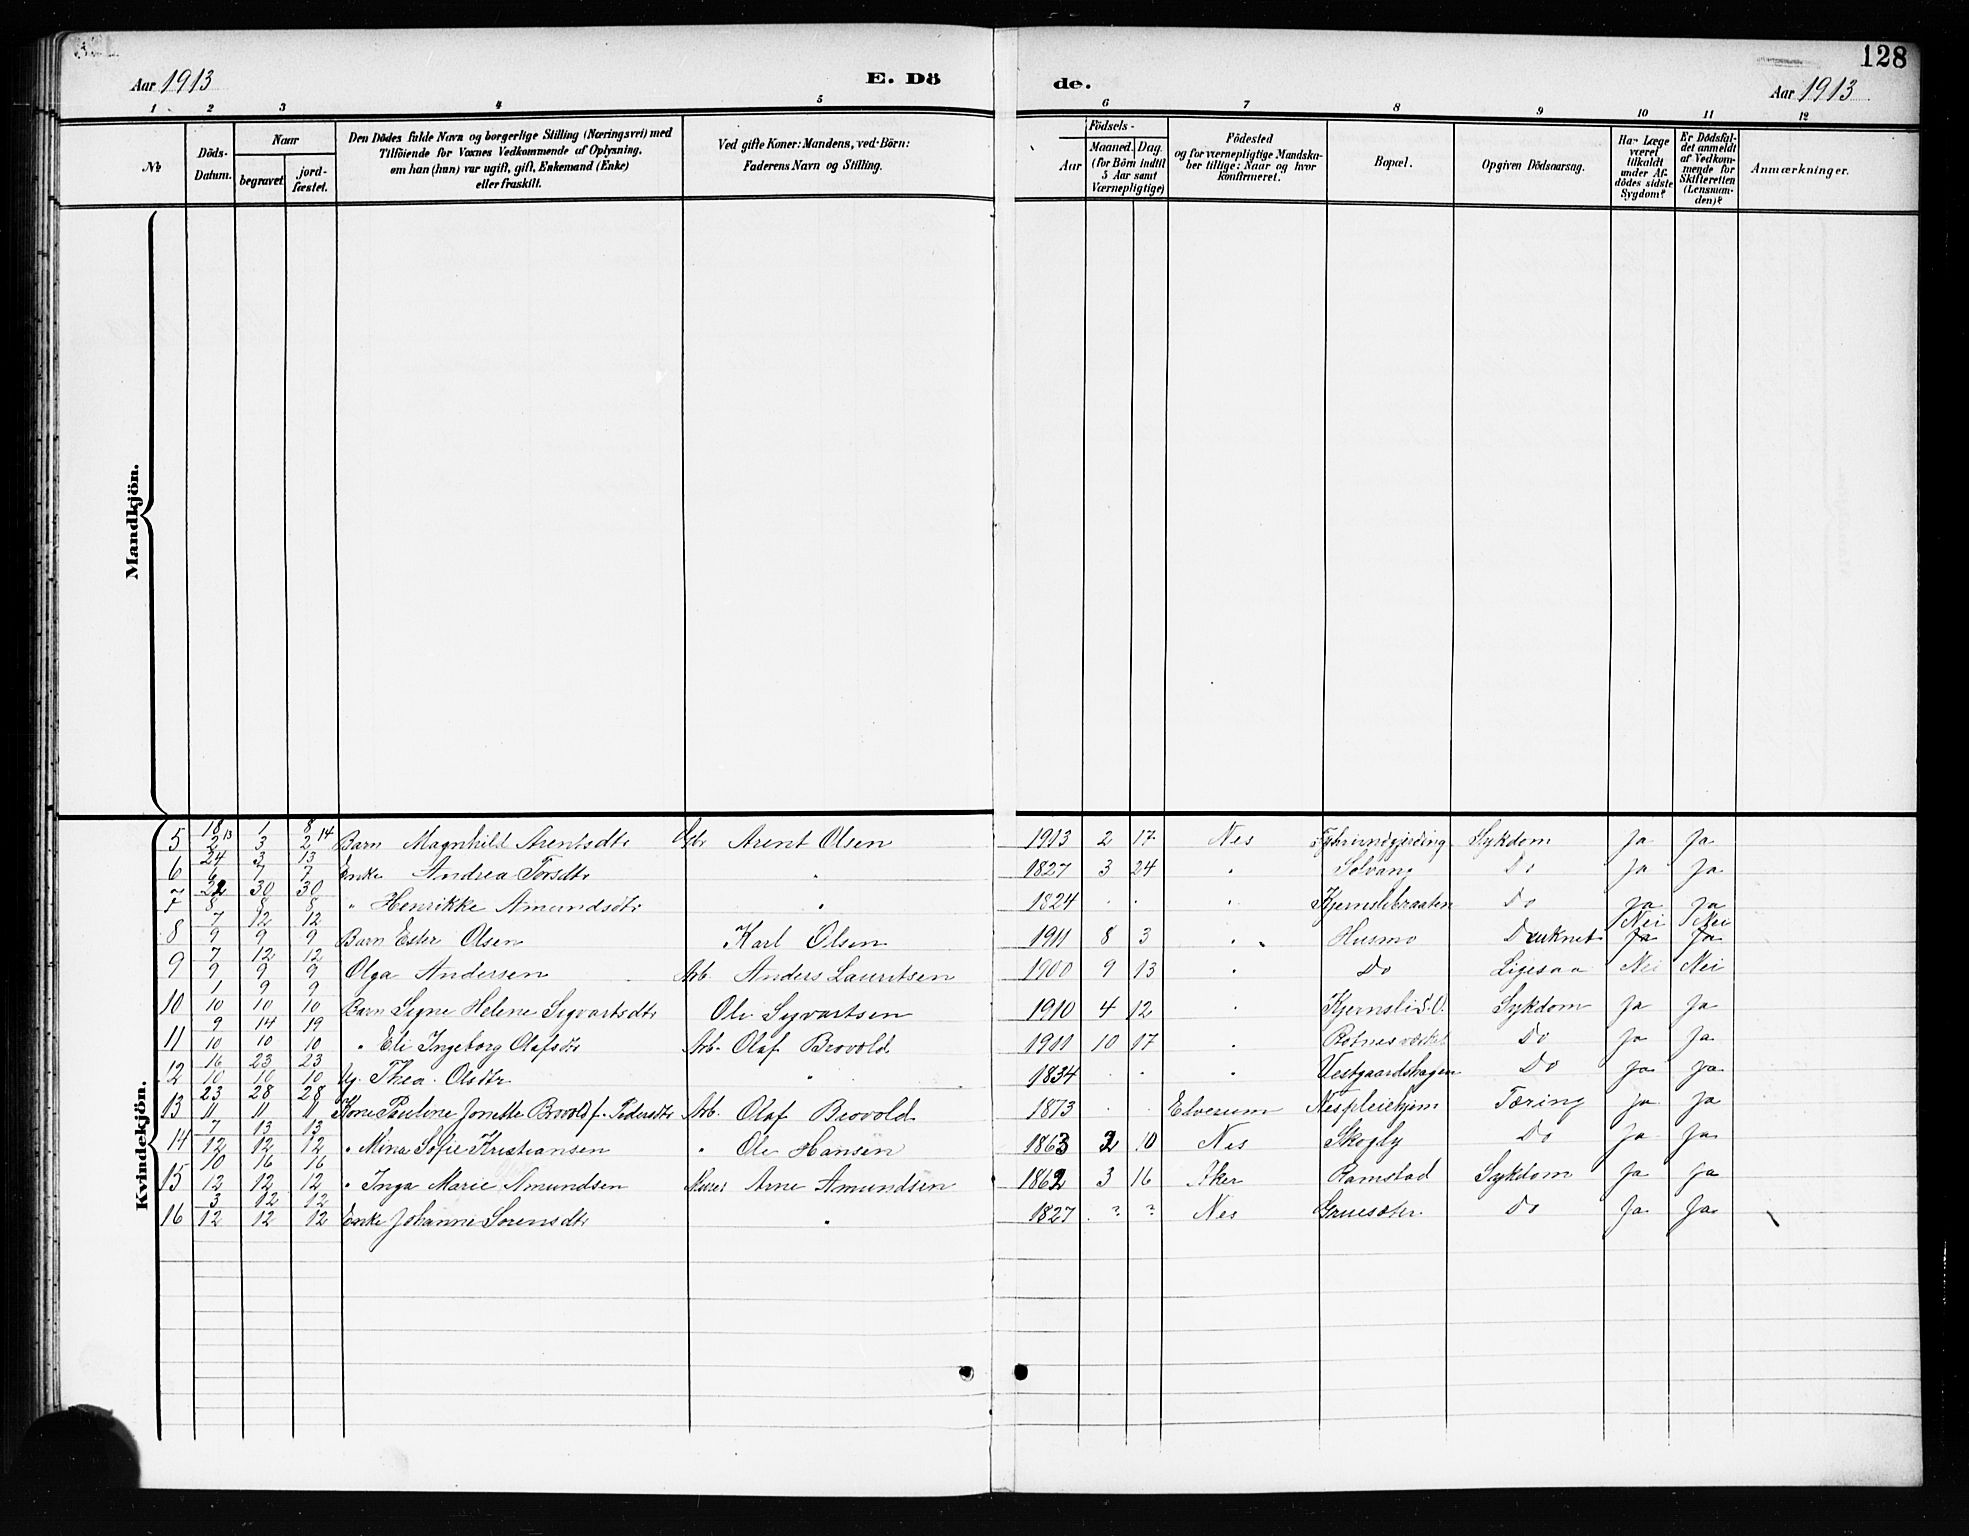 128
Aar 1913 E. Dö de. Aar 1913
1 2 3 4 5 6 7 8 9 10 11 12
No
Döds-Datum.
Naar
begravet
jordfæstet.
Den Dödes fulde Navn og borgerlige Stilling (Næringsvei) med
Tilföiende for Voxnes Vedkommende af Oplysning,
om han (hun) var ugift, gift, Enkemand (Enke)
eller fraskilt.
Ved gifte Koner: Mandens, ved Börn:
Faderens Navn og Stilling.
Födsels-
Aar
Maaned. Dag.
(for Börn indtil
5 Aar samt
Værnepligtige)
Födested
og for værnepligtige Mandska-
ber tillige: Naar og hvor
konfirmeret.
Bopæl.
Opgiven Dödsaarsag.
Har Læge
været
tilkaldt
under Af-
dödes sidste
Sygdom?
Er Dödsfal-
det anmeldt
af Vedkom-
mende for
Skifteretten
(Lensman-
den)?
Anmærkninger.
Mandkjön.
Kvindekjön.
5 18/2 13 1/3 8/2 14 Barn Magnhild Arentsdtr Arent Olsen 1913 2 17 Nes Sykdom Ja Ja
6 24/6 3/7 13/7 Enke Andrea Torsdtr " 1827 3 24 " Solvang Do Ja Ja
7 22/8 30/8 30/8 " Henrikke Amundsdtr " 1824 . . " Kjernslibraaten Do Ja Ja
8 7/9 12/9 12/9 Barn Ester Olsen Karl Olsen 1911 8 3 " " Husmo Druknet Ja Nei Ja Nei
9 7/9 12/9 12/9 Olga Andersen Arb. Anders Lauritsen 1900 9 13 " Do Ligesaa Nei Nei
10 1/10 9/10 9/10 Barn Signe Helene Sigvartsdtr Ole Sigvartsen 1910 4 12 " Kjernsli S.O. Sykdom Ja Ja
11 9/10 14/10 19/10 " Eli Ingeborg Olafsdtr Arb. Olaf Brovold 1911 10 17 " Do Ja Ja
12 16/10 23/10 23/10 Ug. Thea Olsdtr " 1834 . . " Vestgaardshagen Do Ja Ja
13 23/11 28/11 28/11 Kone Pauline Jonette Brovold f. Pedersdtr Arb. Olaf Brovold 1873 . . Elverum Nespleiehjem Tæring Ja Ja
14 7/12 13/12 13/12 " Mina Sofie Kristiansen " Ole Hansen 1863 2 10 Nes Skogly Do Ja Ja
15 10/12 16/12 16/12 " Inga Marie Amundsen Murer Arne Amundsen 1862 3 16 Aker Ramstad Sykdom Ja Ja
16 3/12 12/12 12/12 Enke Johanne Sorensdtr " 1827 ? ? Nes Gruesæter Do Ja Ja